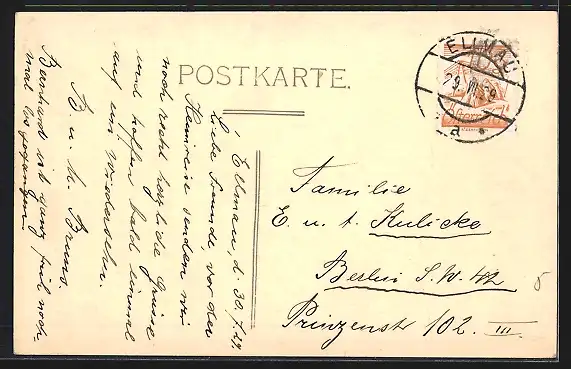 POSTKARTE.
ELLMAU
29. VII. 29
a
Ellmau, d. 30./7.29.
Liebe Freunde, vor der
Heimreise senden wir
noch recht herzliche Grüsse
und hoffen bald einmal
auf ein Wiedersehn.
B. u. M. Bruns.
Bernhard ist ganz früh noch-
mal losgegangen.
Familie
E. u. t. Kulicke
Berlin S.W. 42
Prinzenstr 102. III.
5